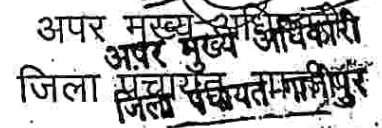 अपर मुख्य अधिकारी
अपर मुख्य अधिकारी
जिला पंचायत
जिला पंचायत-गाजीपुर